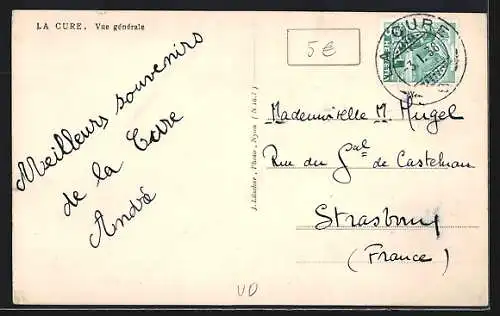 LA CURE. Vue générale
Meilleurs souvenirs
de la Cure
André
5€
LA CURE
Mademoiselle M. Hügel
Rue du Gal de Castelnau
Strasbourg
(France)
VD